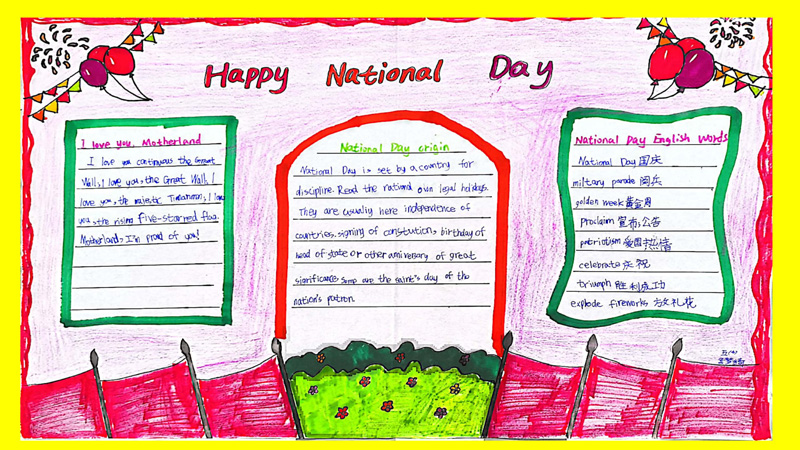 Happy National Day
I love you, Motherland
I love you continuous the Great
Wall, I love you, the Great Wall, I
love you, the majestic Tiananmen, I love
you, the rising five-starred flag.
Motherland, I'm proud of you!
National Day origin
National Day is set by a country for
discipline. Read the national own legal holidays.
They are usually here independence of
countries, signing of constitution, birthday of
head of state or other anniversary of great
significance, some are the saint's day of the
nation's patron.
National Day English Words
National Day 国庆
military parade 阅兵
golden week 黄金周
Proclaim 宣布,公告
patriotism 爱国热情
celebrate 庆祝
triumph 胜利成功
explode fireworks 放礼花